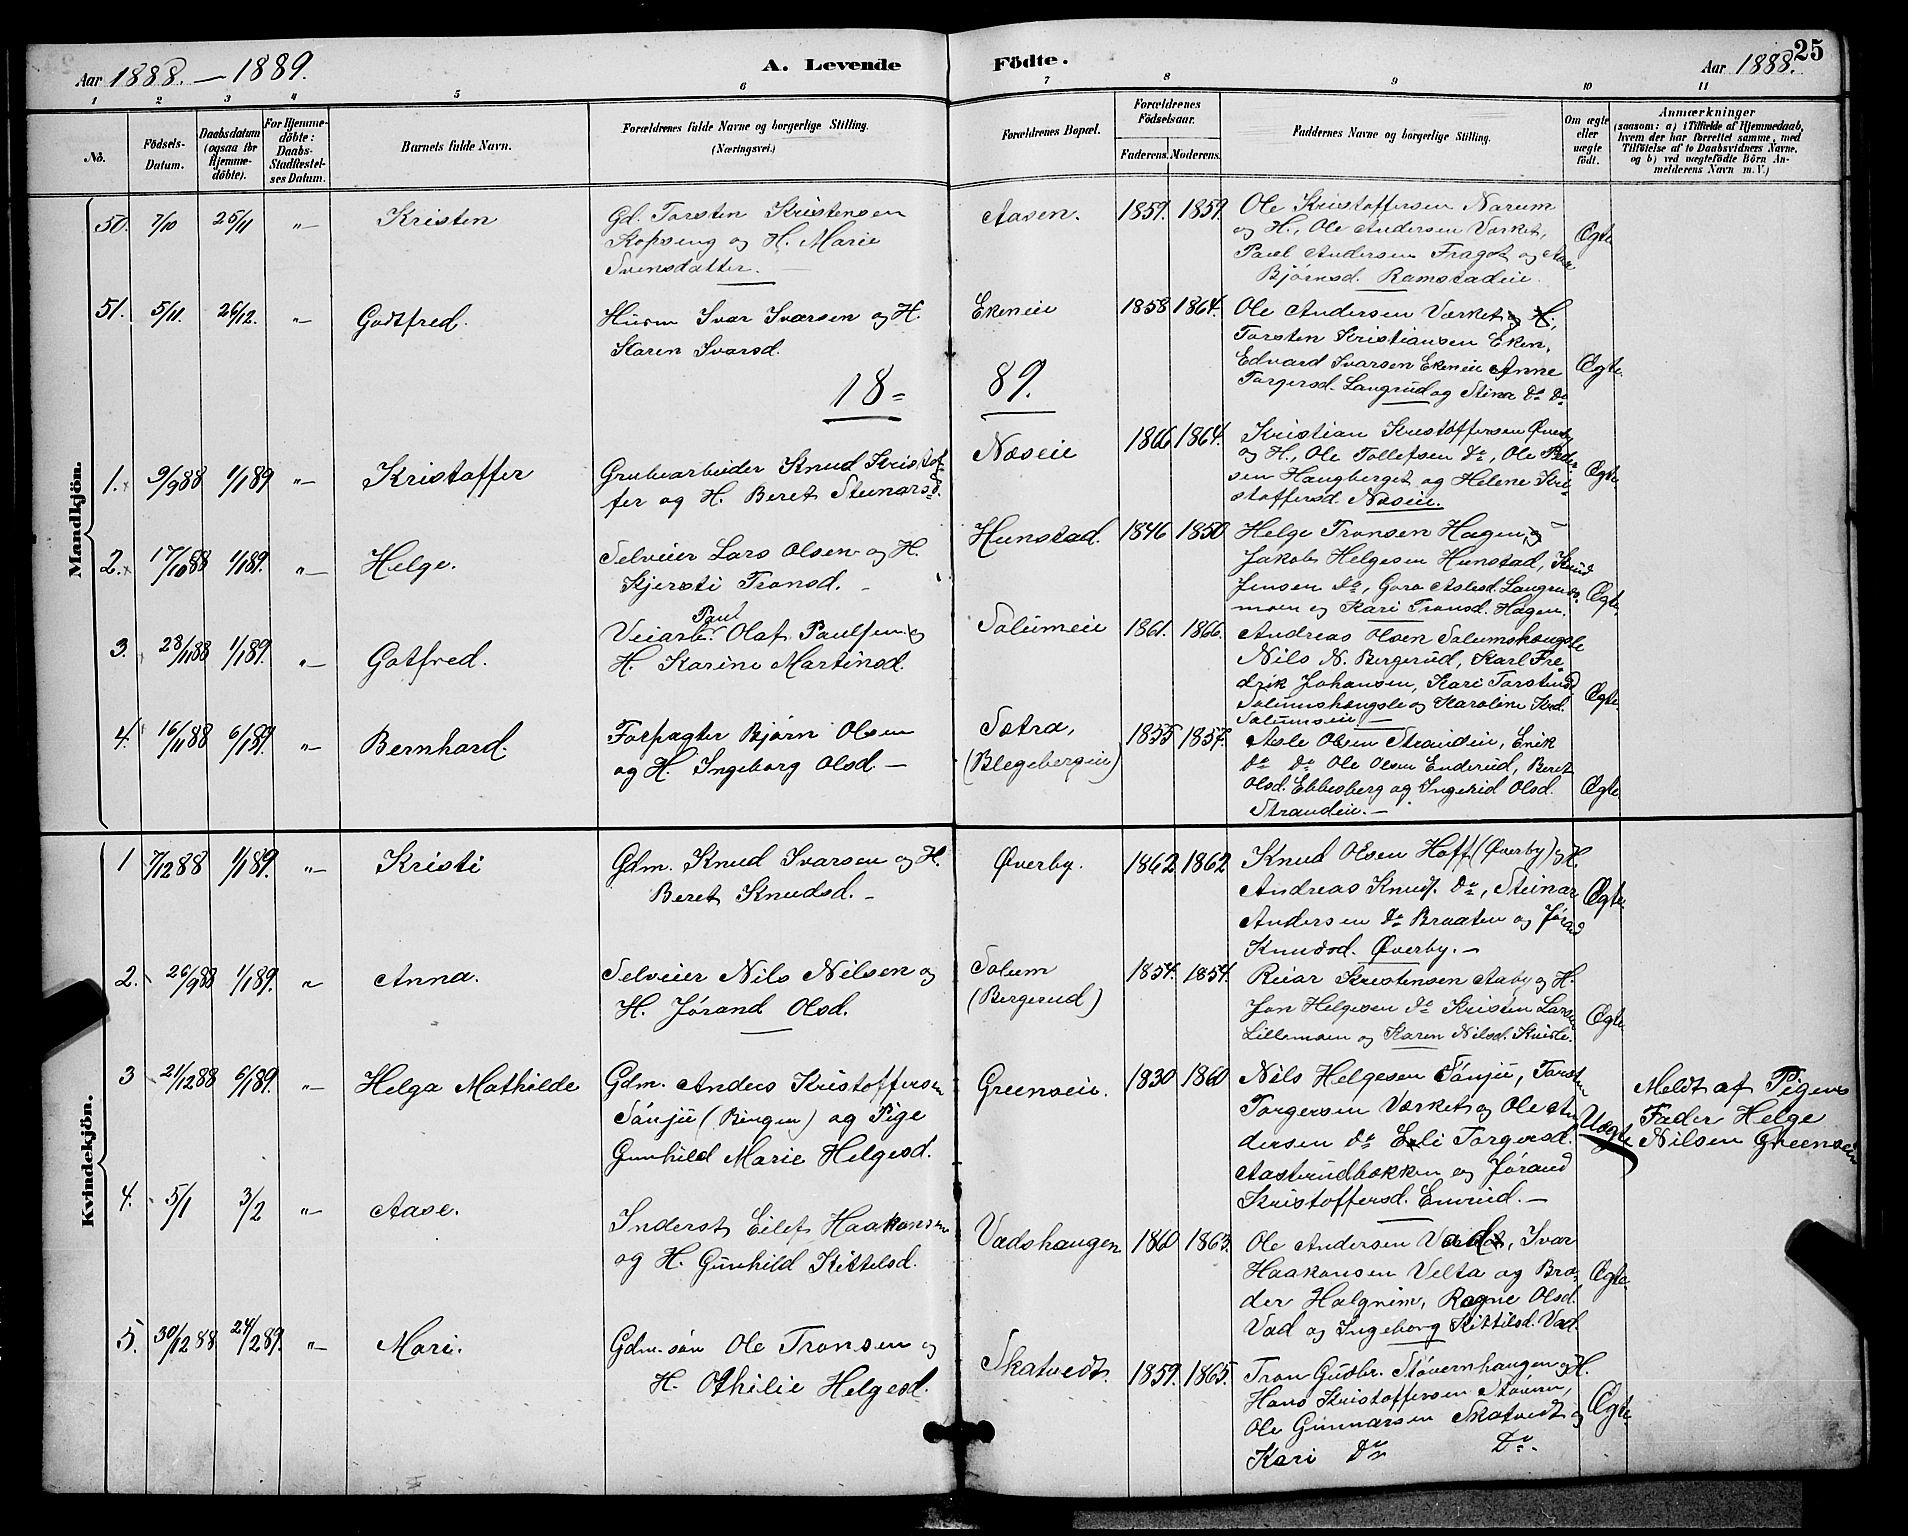 Aar 1888. — 1889.
A. Levende Födte.
Aar 1888.
25
1 2 3 4 5 6 7 8 9 10 11
No.
Födsels-Datum.
Daabsdatum (ogsaa for Hjemme-döbte).
For Hjemme-döbte: Daabs-Stadfæstel-ses Datum.
Barnets fulde Navn.
Forældrenes fulde Navne og borgerlige Stilling.
(Næringsvei.)
Forældrenes Bopæl.
Forældrenes Födselsaar.
Faderens. Moderens.
Faddernes Navne og borgerlige Stilling.
Om ægte eller uægte født.
Anmærkninger
(saasom: a) i Tilfælde af Hjemmedaab,
hvem der har forrettet samme, med
Tilföielse af to Daabsvidners Navne,
og b) ved uægtefödte Börn An-
melderens Navn m. V.)
Mandkjön.
50. 7/10 26/11 „ Kristen
Gd. Torsten Kristensen
Kopseng og H. Marie
Svensdatter. —
Aasen. 1859. 1859.
Ole Kristoffersen Narum
og H., Ole Andersen Værket,
Paul Andersen Fragot og
Bjørnsd. Ramstadeie.
Ægte
51. 5/11. 26/12. „ Godtfred.
Husm Ivar Ivarsen og H.
Karen Ivarsd.
Ekeneie 1858 1864.
Ole Andersen Værket og H.,
Torsten Kristiansen Eken,
Edvard Ivarsen Ekeneie Anne
Torgersd. Langrud og Stina Do Do
Ægte.
18 = 89.
1. 9/9 88 1/1 89 „ Kristoffer
Grubearbeider Knud Kristof-
fer og H. Beret Steinarsd.
Næseie 1866 1864.
Kristian Kristoffersen Øverby
og H., Ole Tollefsen Do, Ole Peder-
sen Haugberget og Helene Kri-
stoffersd. Næseie.
Ægte.
2. 17/10 88 1/1 89. „ Helge.
Selveier Lars Olsen og H.
Kjersti Tronsd. -
Hunstad. 1846 1850
Helge Tronsen Hagen, og
Jakob Helgesen Hunstad, Knud
Jensen Do, Goro Aslesd. Langruds-
moen og Kari Tronsd. Hagen.
Ægte.
3. 28/11 88 1/1 89. „ Gotfred.
Paul
Veiarb. Olaf Paulsen og
H. Karine Martinsd.
Solumeie 1861. 1866.
Andreas Olsen Solumshaugsle
Nils N. Bergerud, Karl Fre-
drik Johansen, Kari Torstensd
Solumshaugsle og Karoline
Solumseie. —
Ægte.
4. 16/11 88 6/1 89. „ Bernhard.
Forpagter Bjørn Olsen
og H. Ingeborg Olsd. —
Sætra,
(Blegebergeie) 1855 1857.
Asle Olsen Strandeie, Erik
Do Do Ole Olsen Enderud, Beret
Olsd. Ebbesberg og Ingerid Olsd.
Strandeie. —
Ægte.
Kvindekjön.
1 7/12 88 1/1 89. „ Kristi
Gdm. Knud Ivarsen og H.
Beret Knudsd. -
Øverby. 1862 1862
Knud Olsen Hoff (Øverby) og H.
Andreas Knuds. Do, Steinar
Andersen Do Braaten og Jørand
Knudsd. Øverby. —
Ægte.
2. 26/9 88 1/1 89. „ Anna.
Selveier Nils Nilsen og
H. Jørand Olsd.
Solum
(Bergerud) 1854. 1854.
Reiar Kristensen Aaby og H.
Jon Helgesen Do Kristen Larsen
Lillemoen og Karen Nilsd.
Ægte
3 21/12 88 6/1 89. „ Helga Mathilde
Gdm. Anders Kristoffersen
Sønju (Ringen) og Pige
Gunhild Marie Helgesd.
Greenseie. 1830 1860
Nils Helgesen Sønju, Torsten
Torgersen Værket og Ole An-
dersen Do Eli Torgersd.
Aastrudbakken og Jørand
Kristoffersd. Enrud. —
Uægte
Meldt af Pigens
Fader Helge
Nilsen Greenseie
4. 5/1 3/2 „ Aase.
Inderst Eilef Haakonsen
og H. Gunhild Kittelsd.
Vadshaugen 1860 1863.
Ole Andersen Vad, Ivar
Haakonsen Velta og Bro-
der Halgrim, Ragne Olsd.
Vad og Ingeborg Kittilsd. Vad.
Ægte.
5. 30/12 88. 24/2 89. „ Mari.
Gdm. søn Ole Tronsen og
H. Othilie Helgesd.
Skatvedt. 1859. 1865.
Tron Gudbr. Støvernhaugen og H.
Hans Kristoffersen Støvern,
Ole Gunnarsen Skatvedt og
Kari Do Do.
Ægte.